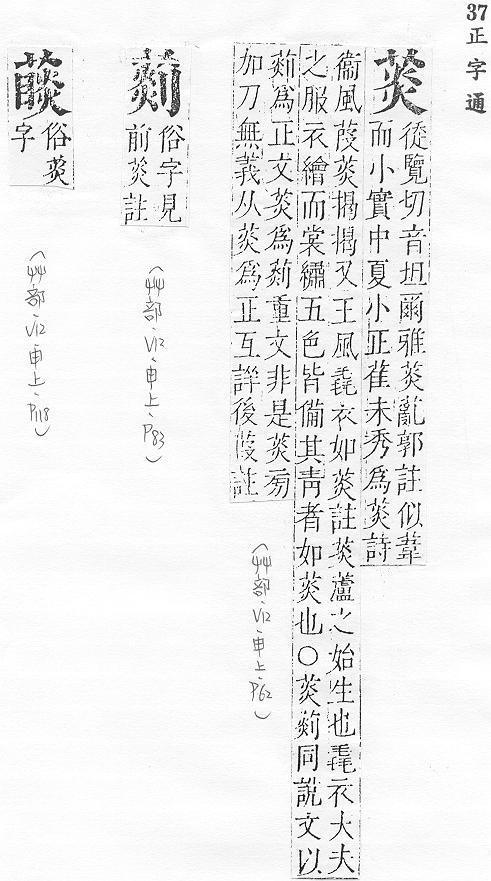 37正字通
菼
徒覽切音坦爾雅菼薍郭註似葦
而小實中夏小正萑未秀爲菼詩
衞風葭菼揭揭又王風毳衣如菼註菼蘆之始生也毳衣大夫
之服衣繪而裳繡五色皆備其靑者如菼也○菼𦵹同說文以
𦵹爲正文菼爲𦵹重文非是菼旁
加刀無義从菼爲正互詳後葭註
(艸部·V12·申上·P62)
𦵹
俗字見
前菼註
(艸部·V12·申上·P83)
俗菼
字
(艸部·V12·申上·P118)